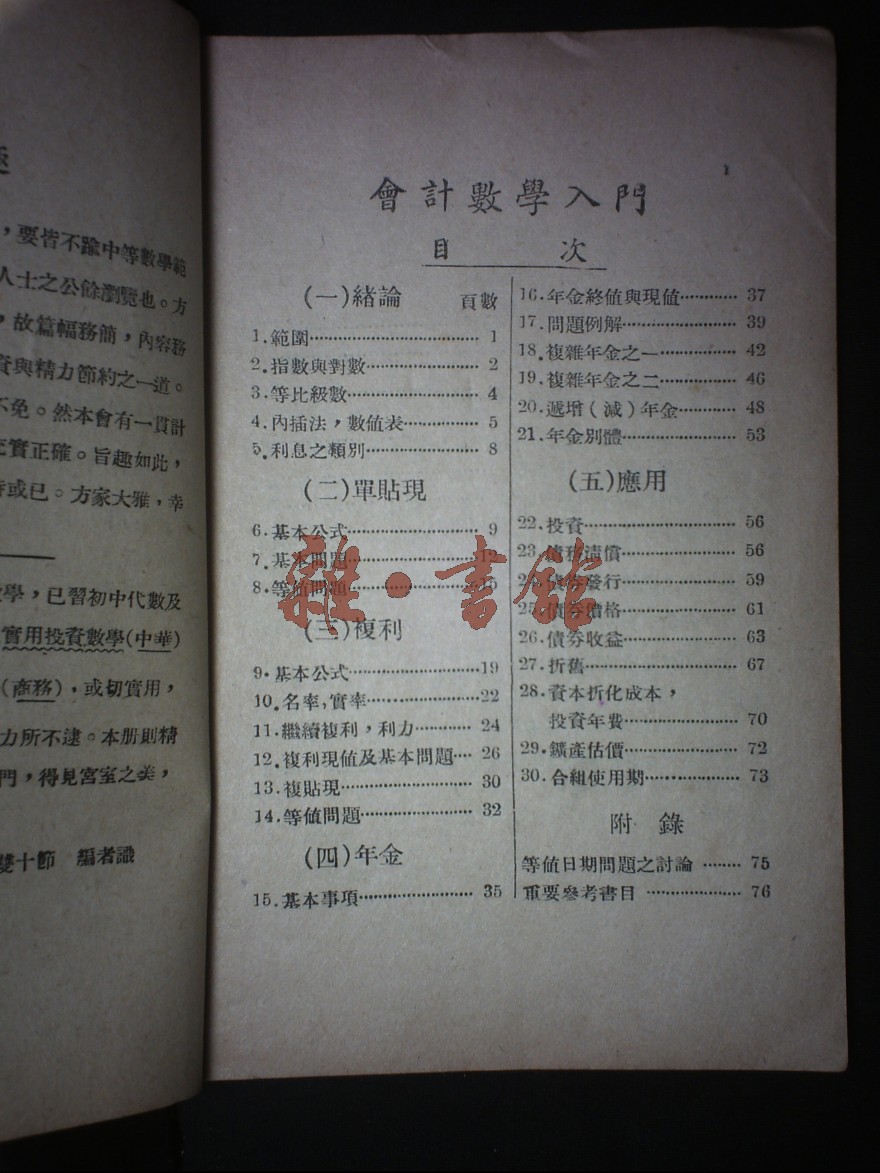 ，要皆不踰中等數學範
人士之公餘瀏覽也。方
，故篇幅務簡，內容務
資與精力節約之一道。
不免。然本會有一貫計
充實正確。旨趣如此，
或已。方家大雅，幸
學，已習初中代數及
實用投資數學(中華)
(商務)，或切實用，
力所不逮。本册則精
門，得見宮室之美，
雙十節　編者識
1
會計數學入門
目　次
(一)緒論　頁數
1.範圍……1
2.指數與對數……2
3.等比級數……4
4.內插法，數值表……5
5.利息之類別……8
(二)單貼現
6.基本公式……9
7.基本問題……12
8.等值問題……15
(三)複利
9.基本公式……19
10.名率，實率……22
11.繼續複利，利力……24
12.複利現值及基本問題…26
13.複貼現……30
14.等值問題……32
(四)年金
15.基本事項……35
16.年金終值與現值……37
17.問題例解……39
18.複雜年金之一……42
19.複雜年金之二……46
20.遞增(減)年金……48
21.年金別體……53
(五)應用
22.投資……56
23.債務清償……56
24.債券發行……59
25.債券價格……61
26.債券收益……63
27.折舊……67
28.資本折化成本，
投資年費……70
29.鑛產估價……72
30.合組使用期……73
附　錄
等値日期問題之討論……75
重要參考書目……76
雜·書館